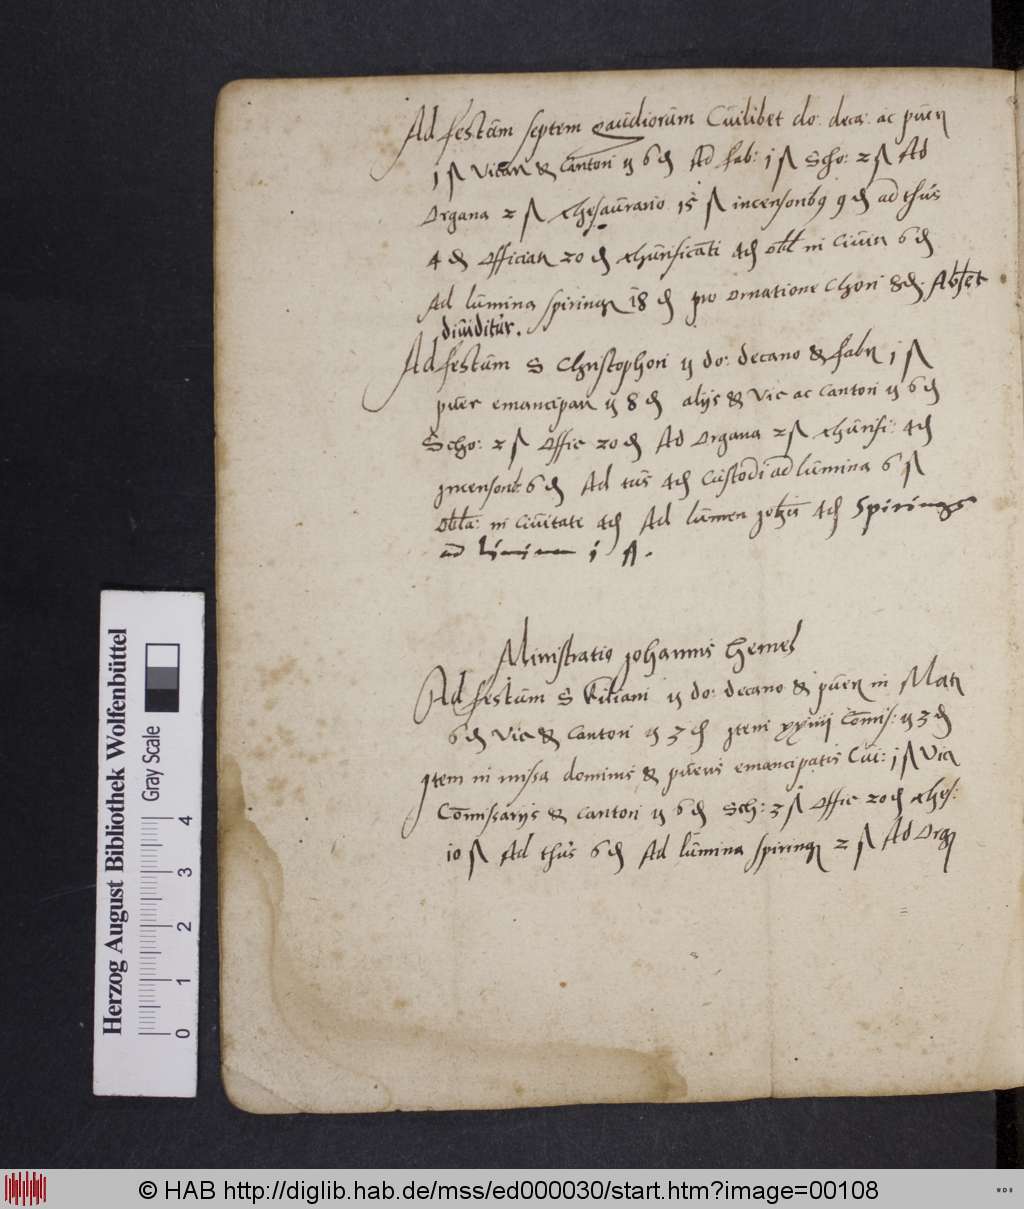 Ad festum septem gaudiorum Cuilibet do: deca: ac puer
1 ß vicar & cantori ij 6 ₰ Ad fab: 1 ß Scho: 2 ß Ad
Organa 2 ß thesaurario 15 ß incensoribq 9 ₰ ad thus
4 ₰ Offician 20 ₰ thurificati 4 ₰ obl in civita 6 ₰
Ad lumina spiringk 18 ₰ pro ornatione chori 8 ₰. Absēt
diuiditur.
Ad festum S Christophori ij do: decano & fabri 1 ß
puer emancipan ij 8 ₰ alijs & vic ac cantori ij 6 ₰
Scho: 2 ß Offic 20 ₰ Ad Organa 2 ß thurifi: 4 ₰
incensorib: 6 ₰ Ad tus 4 ₰ Custodi ad lumina 6 ß
obla: in ciuitate 4 ₰ Ad lumen johis 4 ₰ Spirings
ad lumina 1 ß.
Ministratio johannis Hemel
Ad festum S Kiliani ij do: decano & puer in Mat
6 ₰ vic & cantori ij 3 ₰ Item xxiiij Comis: ij 3 ₰
Item in missa dominis & pueris emancipatis Cui: 1 ß vic
Comissarijs & cantori ij 6 ₰ Sch: 3 ß Offic 20 ₰ thes:
10 ß Ad thus 6 ₰ Ad lumina spiringk 2 ß Ad Org
Herzog August Bibliothek Wolfenbüttel
Gray Scale
0 1 2 3 4
© HAB http://diglib.hab.de/mss/ed000030/start.htm?image=00108